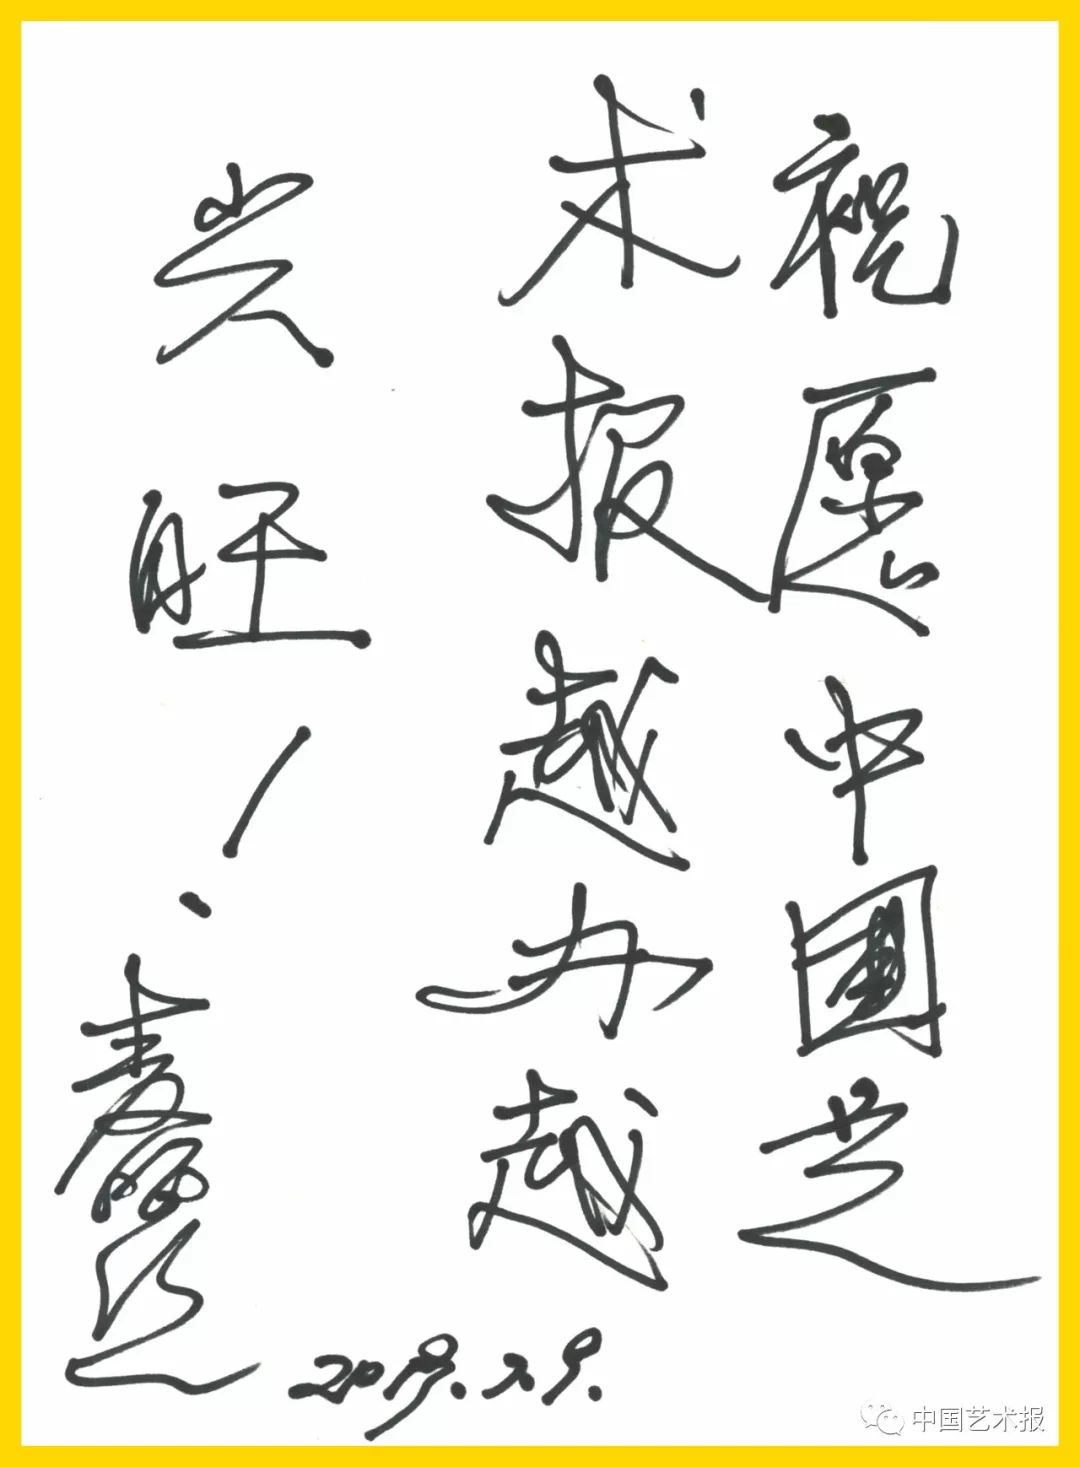 祝愿中國艺
术报越办越
兴旺！
2019.2.9.
中国艺术报